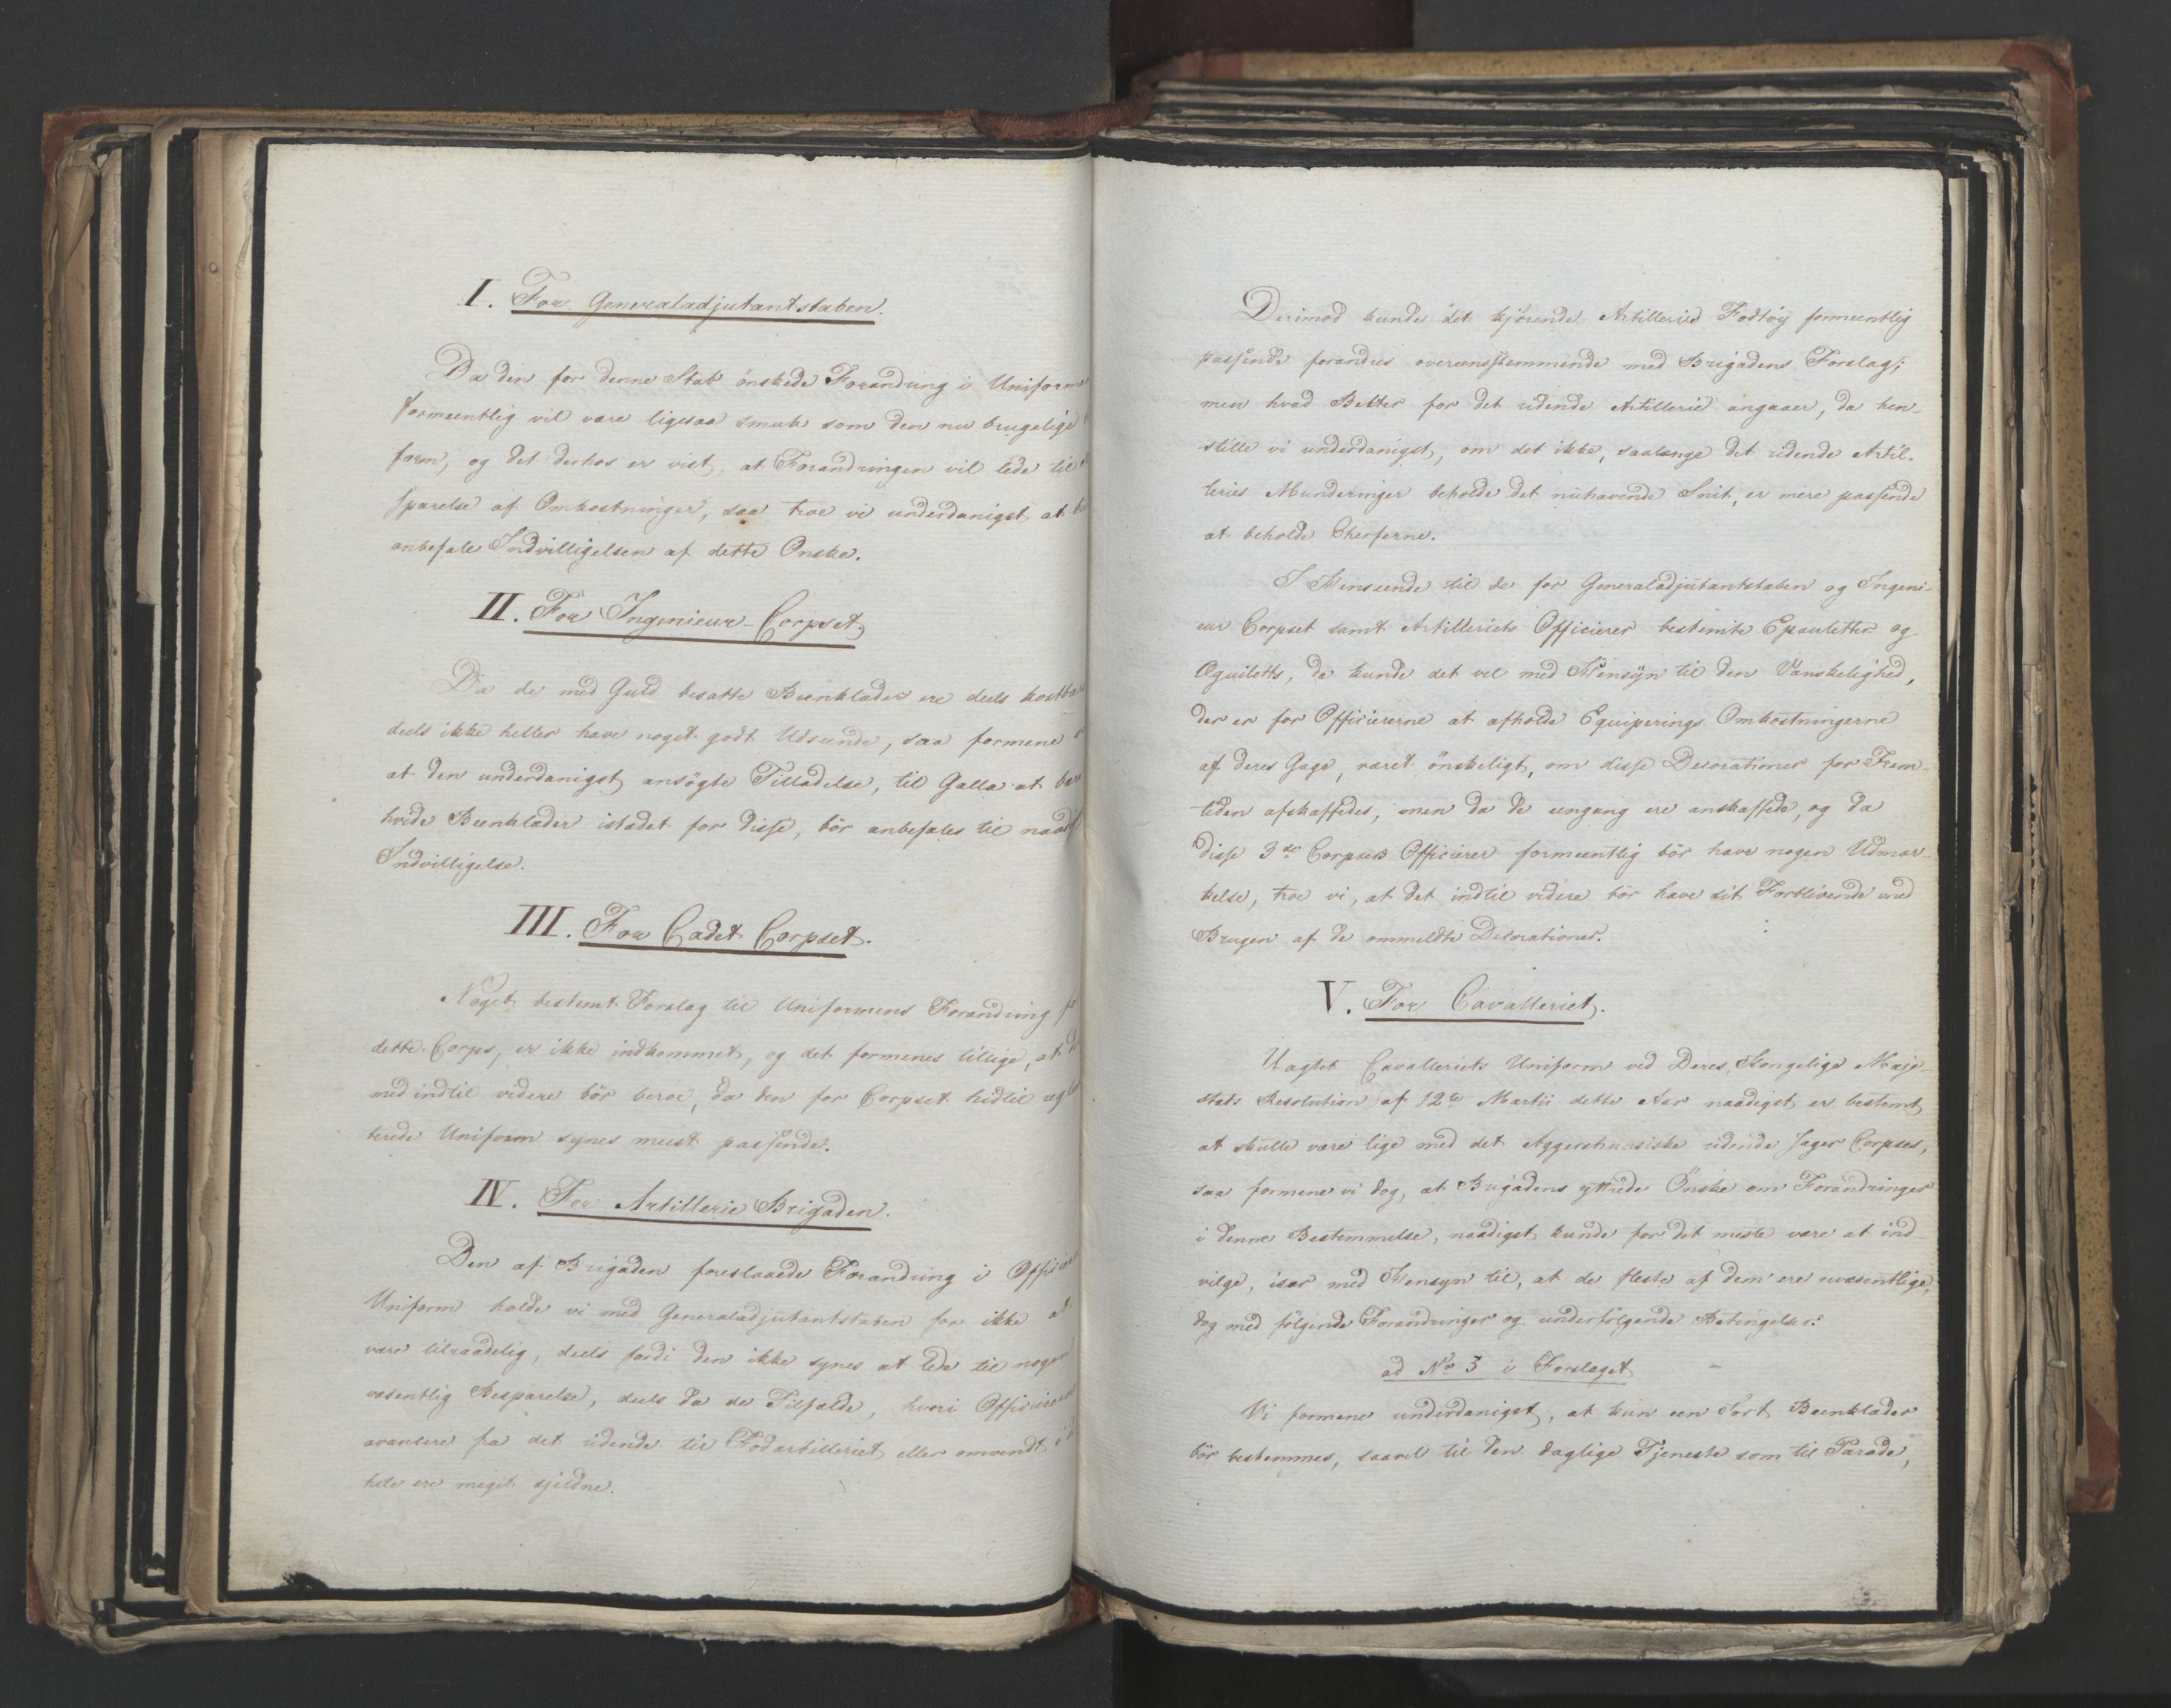 I. For Generaladjutantstaben.
Da den for denne Stab önskede Forandring i Uniform
formeentlig vil være ligesaa smuk som den nu brugelige
form, og det derhos er vist, at Forandringen vil lede til
sparelse af Omkostninger, saa troe vi underdanigst at
anbefale Indvilligelsen af dette Onske.
II. For Ingenieur-Corpset.
Da de med Guld besatte Beenklæder ere deels kostba
deels ikke heller have noget godt Udseende, saa formene
at den underdanigst ansögte Tilladelse, til Galla at bær
hvide Beenklæder istædet for disse, bör anbefales til naadi
Indvilligelse.
III. For Cadet Corpset.
Noget bestemt Forslag til Uniformens Forandring f
dette Corps, er ikke indkommet, og det formenes tillige, at
med indtil videre bör beroe, da den for Corpset hidtil reg
terede Uniform synes meest passende.
IV. For Artillerie Brigaden.
Den af Brigaden foreslaaede Forandring i Officie
Uniform holde vi med Generaladjutantstaben for ikke at
være tilraadelig, deels fordi den ikke synes at lede til nogen
væsentlig Besparelse, deels da de Tilfælde, hvori Officierer
avancere fra det ridende til Fodartilleriet eller omvendt i
hele ere meget sjeldne.
Derimod kunde det kjörende Artilleries Fodtöy formeentlig
passende forandres overeensstemmende med Brigadens Forslag;
men hvad Belter for det ridende Artillerie angaaer, da hen-
stille vi underdanigst, om det ikke, saalænge det ridende Artil-
leries Munderinger beholde det nuhavende Snit, er mere passende
at beholde Skerferne.
I Henseende til de for Generaladjutantstaben og Ingeni-
eur Corpset samt Artilleriets Officierer bestemte Epauletter og
Æguiletts, da kunde det vel med Hensyn til den Vanskelighed,
der er for Officiererne at afholde Equiperings Omkostningerne
af deres Gage, været önskeligt, om disse Decorationer for Frem-
tiden afskaffedes, men da de eengang ere anskaffede, og da
disse 3de Corpsers Officierer formeentlig bör have nogen Udmær-
kelse, troe vi, at det indtil videre bör have sit Forblivende ved
Brugen af de ommeldte Decorationer.
V. For Cavalleriet.
Uagtet Cavalleriets Uniform ved Deres Kongelige Maje-
stæts Resolution af 12te Martii dette Aar naadigst er bestemt
at skulle være lige med det Aggershuusiske ridende Jæger Corpses,
saa formene vi dog, at Brigadens yttrede Önske om Forandringer
i denne Bestemmelse, naadigst kunde for det meste være at ind-
vilge, især med Hensyn til, at de fleste af dem ere uvæsentlige,
dog med fölgende Forandringer og underfölgende Betingelser:
ad No 3 i Forslaget
Vi formene underdanigst, at kun een Sort Beenklæder
bör bestemmes, saavel til den daglige Tjeneste som til Parade,